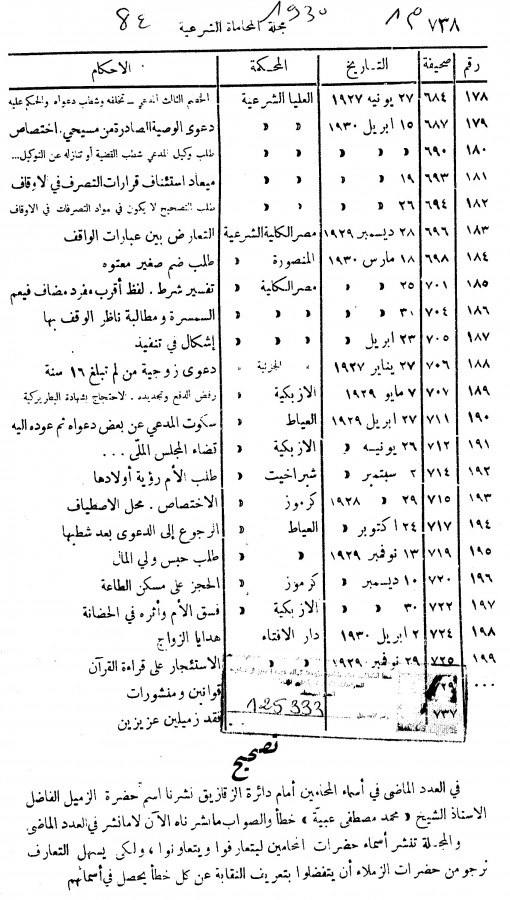 ٧٣٨ م١ 1930 مجلة المحاماة الشرعية 84
رقم صحيفة التاريخ المحكمة الاحكام
١٧٨ ٦٨٤ ٢٧ يونيه ١٩٢٧ العليا الشرعية الخصم الثالث المدعي – تخلفه وشطب دعواه والحكم عليه
١٧٩ ٦٨٧ ١٥ ابريل ١٩٣٠ » » دعوى الوصية الصادرة من مسيحي. اختصاص
١٨٠ ٦٩٠ » » » » » طلب وكيل المدعي شطب القضية أو تنازله عن التوكيل...
١٨١ ٦٩٣ ١٩ » » » » ميعاد استئناف قرارات التصرف في الاوقاف
١٨٢ ٦٩٤ ٢٦ » » » » طلب التصحيح لا يكون في مواد التصرفات في الاوقاف
١٨٣ ٦٩٦ ٢٨ ديسمبر ١٩٢٩ مصر الكلية الشرعية التعارض بين عبارات الواقف
١٨٤ ٦٩٨ ١٨ مارس ١٩٣٠ المنصورة » طلب ضم صغير معتوه
١٨٥ ٧٠١ ٢٥ » » مصر الكلية » تفسير شرط. لفظ أقرب مفرد مضاف فيعم
١٨٦ ٧٠٤ ٣٠ » » » » » السمسرة ومطالبة ناظر الوقف بها
١٨٧ ٧٠٥ ٢٣ ابريل » » » » إشكال في تنفيذ
١٨٨ ٧٠٦ ٢٧ يناير ١٩٢٧ » الجزئية » دعوى زوجية من لم تبلغ ١٦ سنة
١٨٩ ٧٠٧ ٧ مايو ١٩٢٩ الازبكية » رفض الدفع وتجديده. الاحتجاج بشهادة البطريركية
١٩٠ ٧١١ ٢٧ ابريل ١٩٢٩ العياط » سكوت المدعي عن بعض دعواه ثم عوده اليه
١٩١ ٧١٢ ٢٦ يونيه » الازبكية » قضاء المجلس الملّى...
١٩٢ ٧١٤ ٢ سبتمبر » شبراخيت » طلب الأم رؤية أولادها
١٩٣ ٧١٥ ٢٩ » ١٩٢٨ كرموز » الاختصاص. محل الاصطياف
١٩٤ ٧١٧ ٢٤ اكتوبر » العياط » الرجوع إلى الدعوى بعد شطبها
١٩٥ ٧١٩ ١٣ نوفمبر ١٩٢٩ » » طلب حبس ولي المال
١٩٦ ٧٢٠ ١٠ ديسمبر » كرموز » الحجز على مسكن الطاعة
١٩٧ ٧٢٢ ٣٠ » » الازبكية » فسق الأم وأثره في الحضانة
١٩٨ ٧٢٤ ٢ ابريل ١٩٣٠ دار الافتاء هدايا الزواج
١٩٩ ٧٢٥ ٢٩ نوفمبر ١٩٢٩ » » الاستئجار على قراءة القرآن
... قوانين ومنشورات
٧٣٧ 125333 فقد زميلين عزيزين
تصحيح
في العدد الماضى في أسماء المحامين أمام دائرة الزقازيق نشرنا اسم حضرة الزميل الفاضل
الاستاذ الشيخ « محمد مصطفى عبية » خطأ والصواب ما نشرناه الآن لا ما نشر في العدد الماضى
والمجلة تنشر أسماء حضرات المحامين ليتعارفوا ويتعاونوا، ولكى يسهل التعارف
نرجو من حضرات الزملاء أن يتفضلوا بتعريف النقابة عن كل خطأ يحصل في أسمائهم